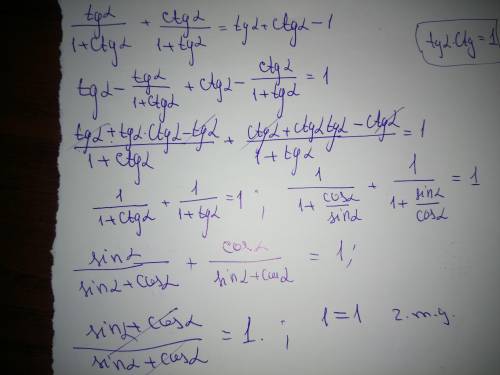 tgα/(1+ctgα) + ctgα/(1+tgα) = tgα+ctgα-1
tgα ctg = 1
tgα - tgα/(1+ctgα) + ctgα - ctgα/(1+tgα) = 1
(tgα+tgα·ctgα-tgα)/(1+ctgα) + (ctgα+ctgα tgα-ctgα)/(1+tgα) = 1
1/(1+ctgα) + 1/(1+tgα) = 1 ; 1/(1+cosα/sinα) + 1/(1+sinα/cosα) = 1
sinα/(sinα+cosα) + cosα/(sinα+cosα) = 1 ;
(sinα+cosα)/(sinα+cosα) = 1. ; 1=1 г.т.д.